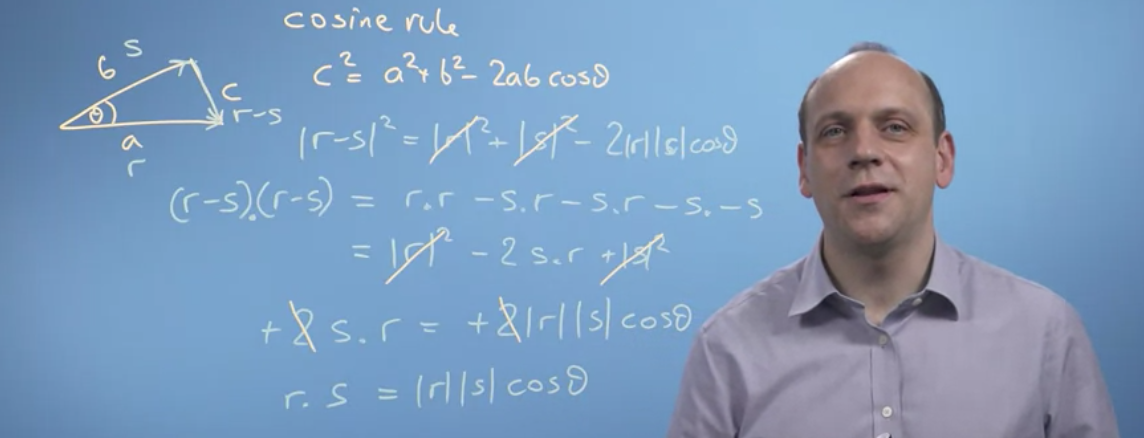 cosine rule
c² = a² + b² - 2ab cosθ
b s
θ
c
r-s
a
r
|r-s|² = |r|² + |s|² - 2|r||s|cosθ
(r-s).(r-s) = r.r - s.r - s.r - s.-s
= |r|² - 2 s.r + |s|²
+2 s.r = +2|r||s|cosθ
r.s = |r||s|cosθ